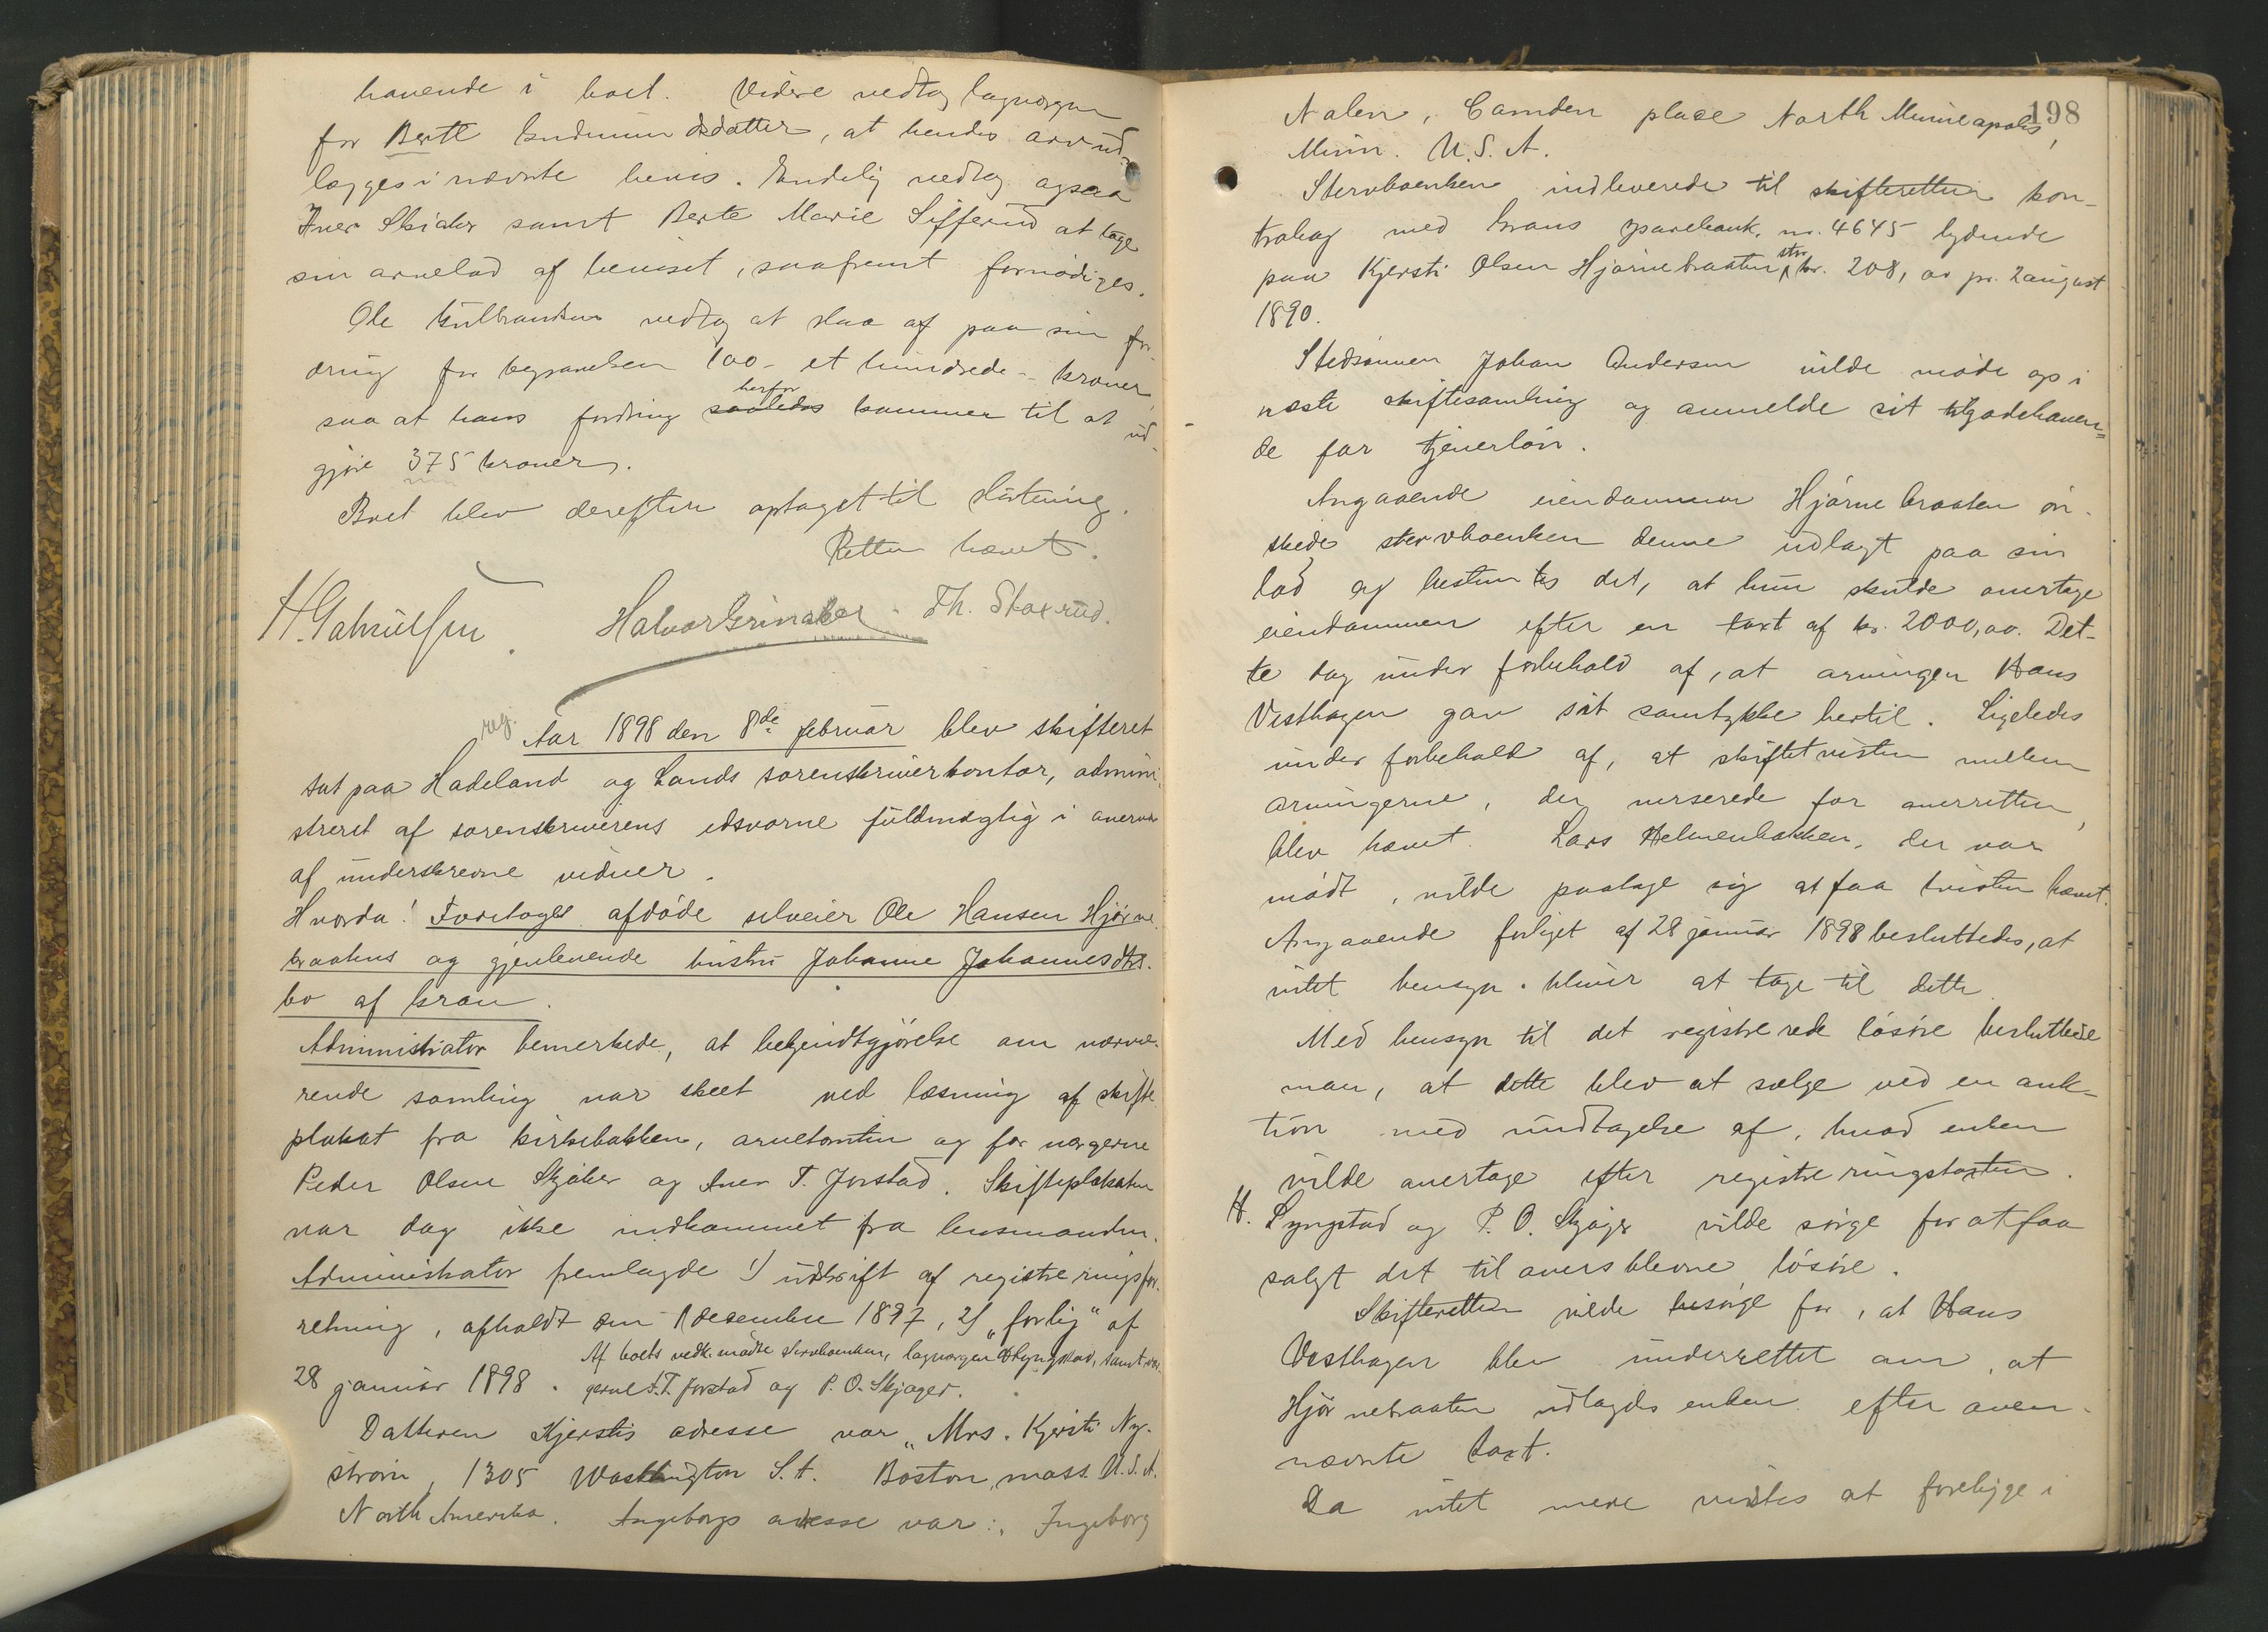 havende i boet. Videre vedtog lagvergen
for Berte Gudmundsdatter, at hendes arv ud-
lægges i nævnte bevis. Endelig vedtog ogsaa
Iver Skiaker samt Berte Marie Sifferud at tage
sin arvelod af beviset, saafremt fornødiges.
Ole Gulbrandsen vedtog at slaa af paa sin for-
dring for begravelsen 100 - et hundrede - kroner,
saa at hans fordring saaledes herfor kommer til at ud-
gjøre 375 kroner.
Boet blev derefter optaget til slutning.
Retten hævet.
H. Gabrielsen. Halvor Grinaker Th. Staxrud.
reg. Aar 1898 den 8de februar blev skifteret
sat paa Hadeland og Lands sorenskriverkontor, admini-
streret af sorenskriverens edsvorne fuldmægtig i overvær
af underskrevne vidner.
Hvorda: Foretoges afdøde selveier Ole Hansen Hjørne-
braatens og gjenlevende hustru Johanne Johannesdtrs.
bo af Gran.
Administrator bemerkede, at bekjendtgjørelse om nærvæ-
rende samling var skeet ved læsning af skifte-
plakat fra kirkebakken, arvetomten og for vergerne
Peder Olsen Skjaker og Iver T. Jorstad. Skifteplakaten
var dog ikke indkommet fra lensmanden.
Administrator fremlagde 1) udskrift af registreringsfor-
retning, afholdt den 1 desember 1897, 2) "forlig" af
28 januar 1898. Af boets vedk. mødte stervboenken, lagvergen H. Lyngstad, samt ver-
gerne I. T. Jorstad og P. O. Skjager.
Datteren Kjerstis adresse var "Mrs. Kjersti Ny-
strøm, 1305 Washington S.t. Boston, mass. U.S.A.
North Amerika. Ingeborgs adresse var: "Ingeborg
198
Nalen, Camden place North Minneapolis,
Minn. U.S.A.
Stervboenken indleverede til skifteretten kon-
trabog med Grans sparebank nr. 4645 lydende
paa Kjersti Olsen Hjørnebraaten stor kr. 208,00 pr. 2 august
1890.
Stedsønnen Johan Andersen vilde møde op i
næste skiftesamling og anmelde sit tilgodehaven=
de for tjenerløn.
Angaaende eiendommen Hjørnebraaten øn-
skede stervboenken denne udlagt paa sin
lod og bestemtes det, at hun skulde overtage
eiendommen efter en taxt af kr. 2000,00. Det-
te dog under forbehold af, at arvingen Hans
Vesthagen gav sit samtykke hertil. Ligeledes
under forbehold af, at skiftetvisten mellem
arvingerne, der verserede for overretten,
blev hævet. Lars Helmenbakken, der var
mødt, vilde paatage sig at faa tvisten hævet.
Angaaende forliget af 28 januar 1898 besluttedes, at
intet hensyn bliver at tage til dette.
Med hensyn til det registrerede løsøre besluttede
man, at dette blev at sælge ved en auk-
tion med undtagelse af, hvad enken
vilde overtage efter registreringstaxten.
H. Lyngstad og P. O. Skjager vilde sørge for at faa
solgt det til overs blevne løsøre.
Skifteretten vilde besørge for, at Hans
Vesthagen blev underrettet om, at
Hjørnebraaten udlagdes enken efter oven-
nævnte taxt.
Da intet mere vidstes at foreligge i